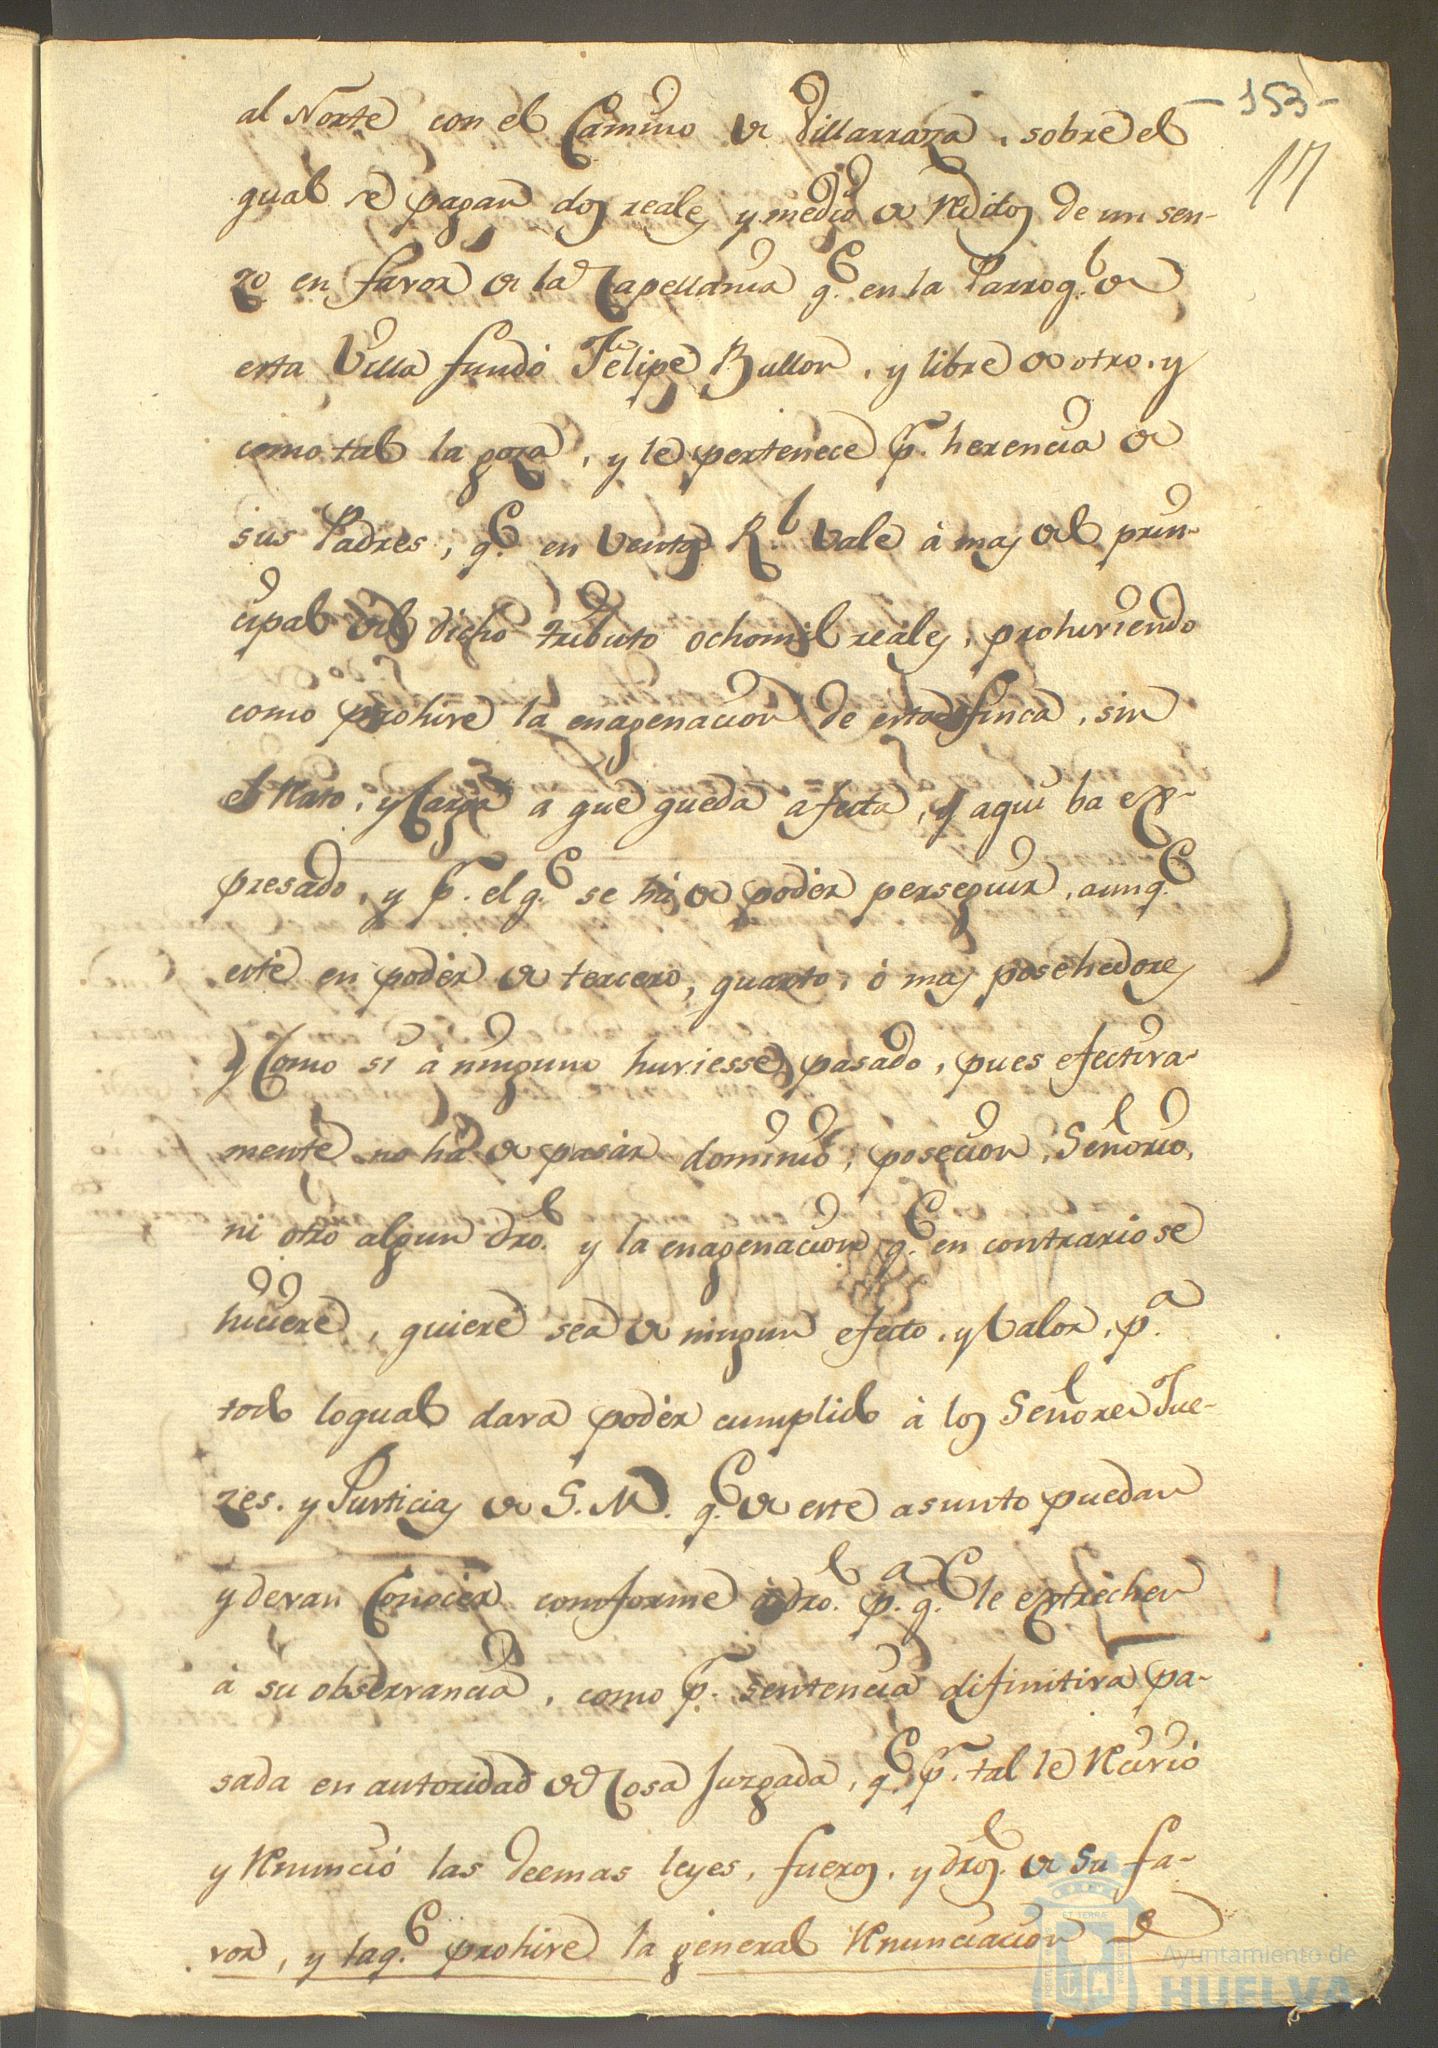 -153-
17
al Norte con el Camino de Villarraza, sobre el
qual se pagan dos reales y medio de Reditos de un sen-
zo en favor de la Capellania q.e en la Parroq.l de
esta Villa fundó Felipe Bullon, y libre de otro, y
como tal la goza, y le pertenece p.r herencia de
sus Padres, q.e en Venta R.l Vale à mas del prin-
cipal del dicho tributo ochomil reales, prohiviendo
como prohive la enagenacion de esta finca, sin
el Nato, y Carga a que queda afecta, y aqui ba ex-
presado, y p.r el q.e se ha de poder perseguir, aunq.e
esté en poder de tercero, quarto, ó mas posehedores
y Como si à ninguno huviesse pasado, pues efectiva-
mente no ha de pasar dominio, posecion, Señorio,
ni otro algun dro. y la enagenacion q.e en contrario se
hiciere, quiere sea de ningun efecto, y Valor, p.a
todo loqual dara poder cumplido à los Señores Jue-
zes, y Justicias de S. M. q.e de este asunto puedan
y devan Conocer comforme à dro. p.a q.e le extrechen
à su observancia, como p.r sentencia difinitiva pa-
sada en autoridad de Cosa Juzgada, q.e p.r tal le Recivió
y Renunció las deemas leyes, fueros, y dros. de su fa-
vor, y la q.e prohive la general Renunciacion
Ayuntamiento de
HUELVA